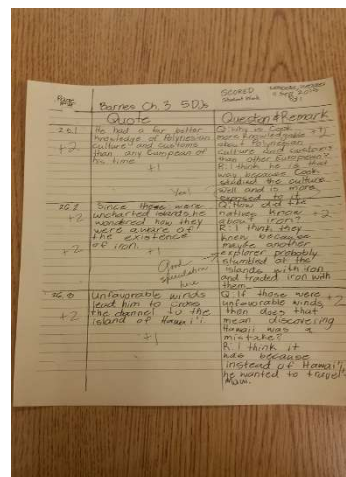 Barnes Ch. 3 5 DJs
SCORED
Student Mark
Quote
Question & Remark
+2
He had a far better
knowledge of Polynesian
culture and customs
than any European of
his time
+1
Q: Why is Cook
more knowledgable +1
about Polynesian
culture and customs
than other Europeans?
R: I think he is that
way because Cook
studied the culture
well and is more
exposed to it
Yes!
+2
Since these were
uncharted islands he
wondered how they
were aware of
the existence
of iron.
+2
+1
Q: How did the
natives know +2
about iron?
R: I think they
knew because
maybe another
explorer probably
stumbled at the
islands with iron
and traded iron with
them
Good
speculation
here
+2
Unfavorable winds
lead him to cross
the channel to the
island of Hawai'i
+1
Q: If those were
unfavorable winds +2
then does that
mean discovering
Hawaii was a
mistake?
R: I think it
was because
instead of Hawai'i
he wanted to travel